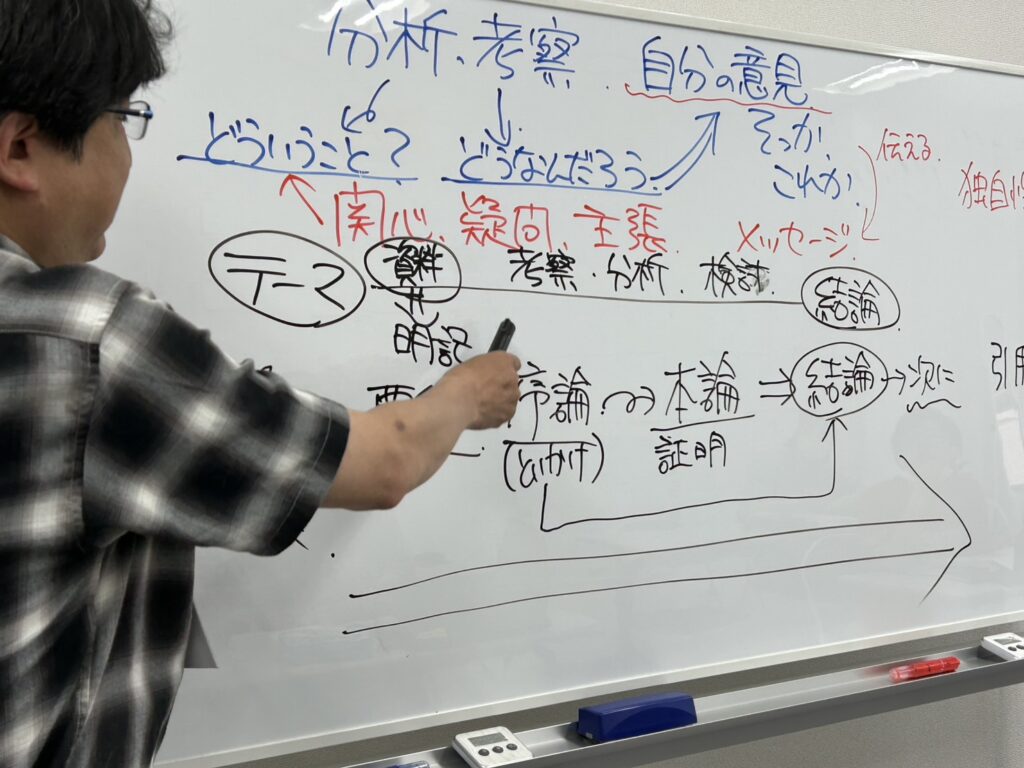 分析、考察、自分の意見
どういうこと? どうなんだろう。 そっか、
これか 伝える。
関心、疑問、主張。 メッセージ。 独自性
テーマ 資料 考察、分析、検討 結論
明記
序論 本論 ⇒ 結論 → 次に 引用
(といかけ) 証明